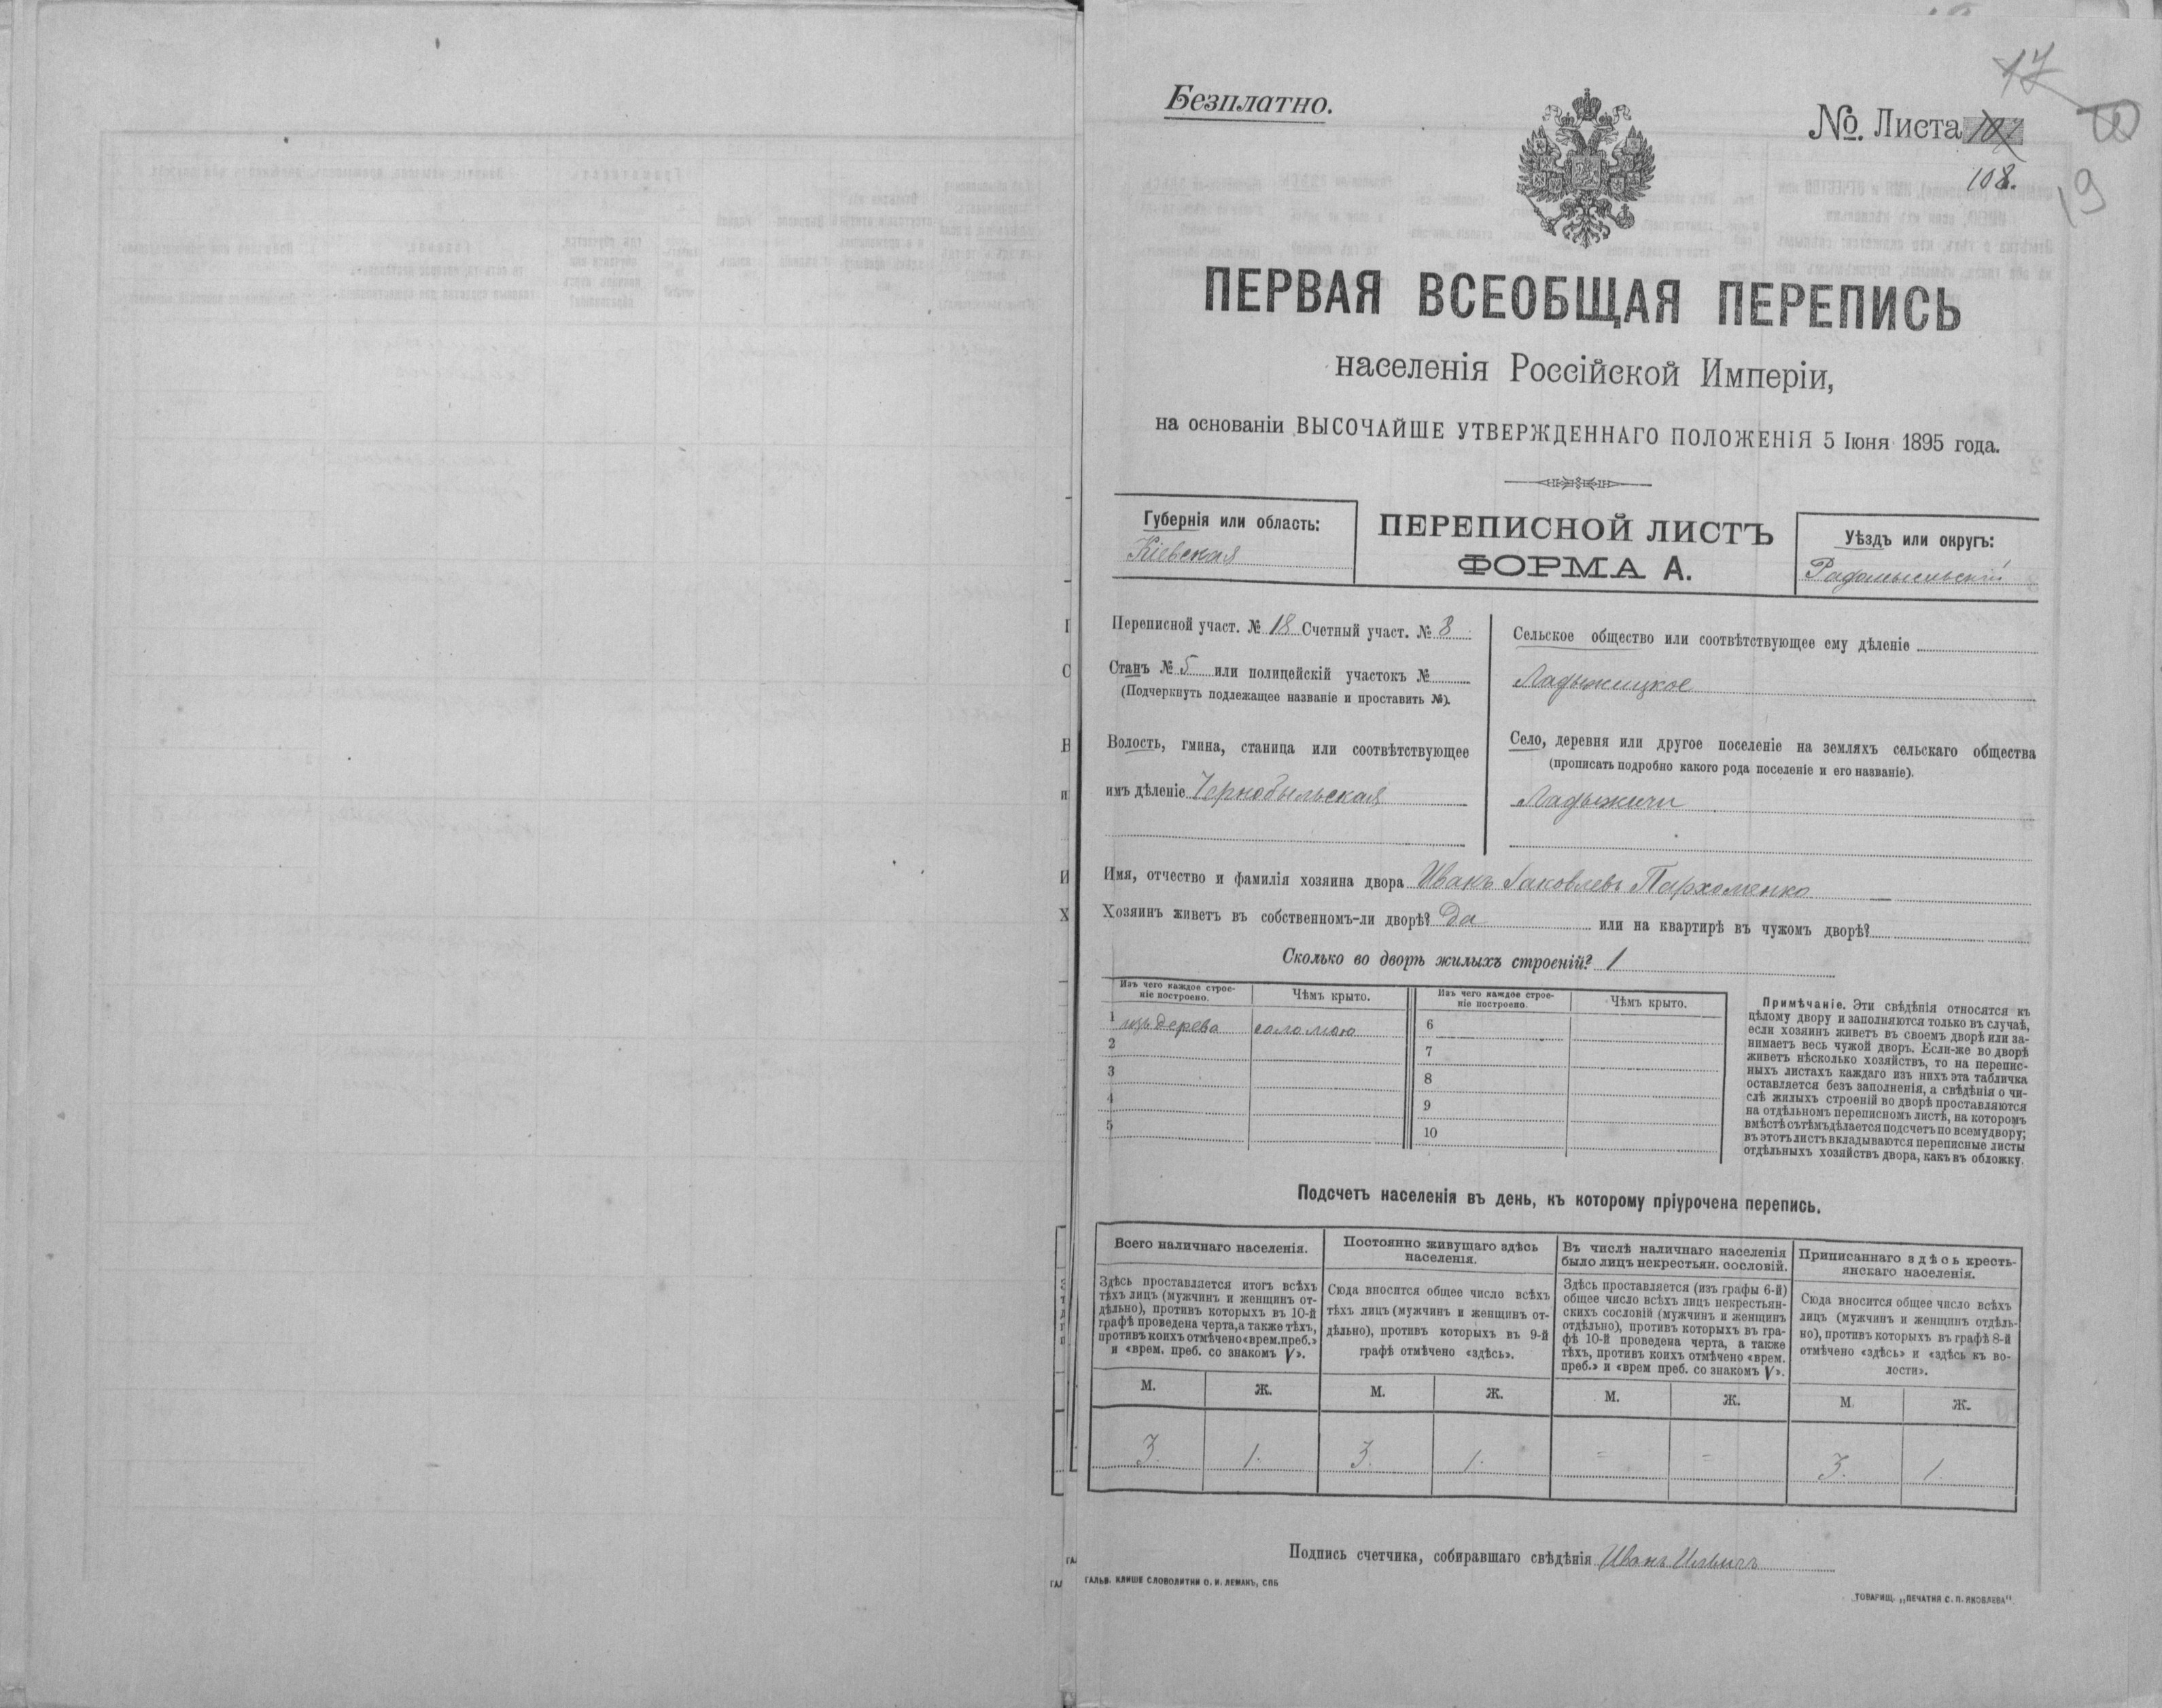 Безплатно.
17
№. Листа 107
108.
19
ПЕРВАЯ ВСЕОБЩАЯ ПЕРЕПИСЬ
населенія Россійской Имперіи,
на основаніи ВЫСОЧАЙШЕ УТВЕРЖДЕННАГО ПОЛОЖЕНІЯ 5 Іюня 1895 года.
Губернія или область:
Кіевская
ПЕРЕПИСНОЙ ЛИСТЪ
ФОРМА А.
Уѣздъ или округъ:
Радомысльскій
Переписной участ. № 18 Счетный участ. № 8
Станъ № 5 или полицейскій участокъ №
(Подчеркнуть подлежащее названіе и проставить №).
Волость, гмина, станица или соотвѣтствующее
имъ дѣленіе Чернобыльская
Сельское общество или соотвѣтствующее ему дѣленіе
Ладыжицкое
Село, деревня или другое поселеніе на земляхъ сельскаго общества
(прописать подробно какого рода поселеніе и его названіе).
Ладыжичи
Имя, отчество и фамилія хозяина двора Иванъ Іаковлевъ Пархоменко
Хозяинъ живетъ въ собственномъ-ли дворѣ? Да или на квартирѣ въ чужомъ дворѣ?
Сколько во дворѣ жилыхъ строеній? 1
Изъ чего каждое строе-
ніе построено.
Чѣмъ крыто.
Изъ чего каждое строе-
ніе построено.
Чѣмъ крыто.
1 изъ дерева соломою 6
2 7
3 8
4 9
5 10
Примѣчаніе. Эти свѣдѣнія относятся къ
цѣлому двору и заполняются только въ случаѣ,
если хозяинъ живетъ въ своемъ дворѣ или за-
нимаетъ весь чужой дворъ. Если-же во дворѣ
живетъ нѣсколько хозяйствъ, то на перепис-
ныхъ листахъ каждаго изъ нихъ эта табличка
оставляется безъ заполненія, а свѣдѣнія о чи-
слѣ жилыхъ строеній во дворѣ проставляются
на отдѣльномъ переписномъ листѣ, на которомъ
вмѣстѣ съ тѣмъ дѣлается подсчетъ по всему двору;
въ этотъ листъ вкладываются переписные листы
отдѣльныхъ хозяйствъ двора, какъ въ обложку.
Подсчетъ населенія въ день, къ которому пріурочена перепись.
Всего наличнаго населенія.
Здѣсь проставляется итогъ всѣхъ
тѣхъ лицъ (мужчинъ и женщинъ от-
дѣльно), противъ которыхъ въ 10-й
графѣ проведена черта, а также тѣхъ,
противъ коихъ отмѣчено «врем. преб.»
и «врем. преб. со знакомъ V».
Постоянно живущаго здѣсь
населенія.
Сюда вносится общее число всѣхъ
тѣхъ лицъ (мужчинъ и женщинъ от-
дѣльно), противъ которыхъ въ 9-й
графѣ отмѣчено «здѣсь».
Въ числѣ наличнаго населенія
было лицъ некрестьян. сословій.
Здѣсь проставляется (изъ графы 6-й)
общее число всѣхъ лицъ некрестьян-
скихъ сословій (мужчинъ и женщинъ
отдѣльно), противъ которыхъ въ гра-
фѣ 10-й проведена черта, а также
тѣхъ, противъ коихъ отмѣчено «врем.
преб.» и «врем преб. со знакомъ V».
Приписаннаго здѣсь кресть-
янскаго населенія.
Сюда вносится общее число всѣхъ
лицъ (мужчинъ и женщинъ отдѣль-
но), противъ которыхъ въ графѣ 8-й
отмѣчено «здѣсь» и «здѣсь къ во-
лости».
М. Ж. М. Ж. М. Ж. М. Ж.
3. 1. 3. 1. = = 3. 1.
Подпись счетчика, собиравшаго свѣдѣнія Иванъ Ильичъ
ГАЛЬВ. КЛИШЕ СЛОВОЛИТНИ О. И. ЛЕМАНЪ, СПБ
ТОВАРИЩ. „ПЕЧАТНЯ С. П. ЯКОВЛЕВА"